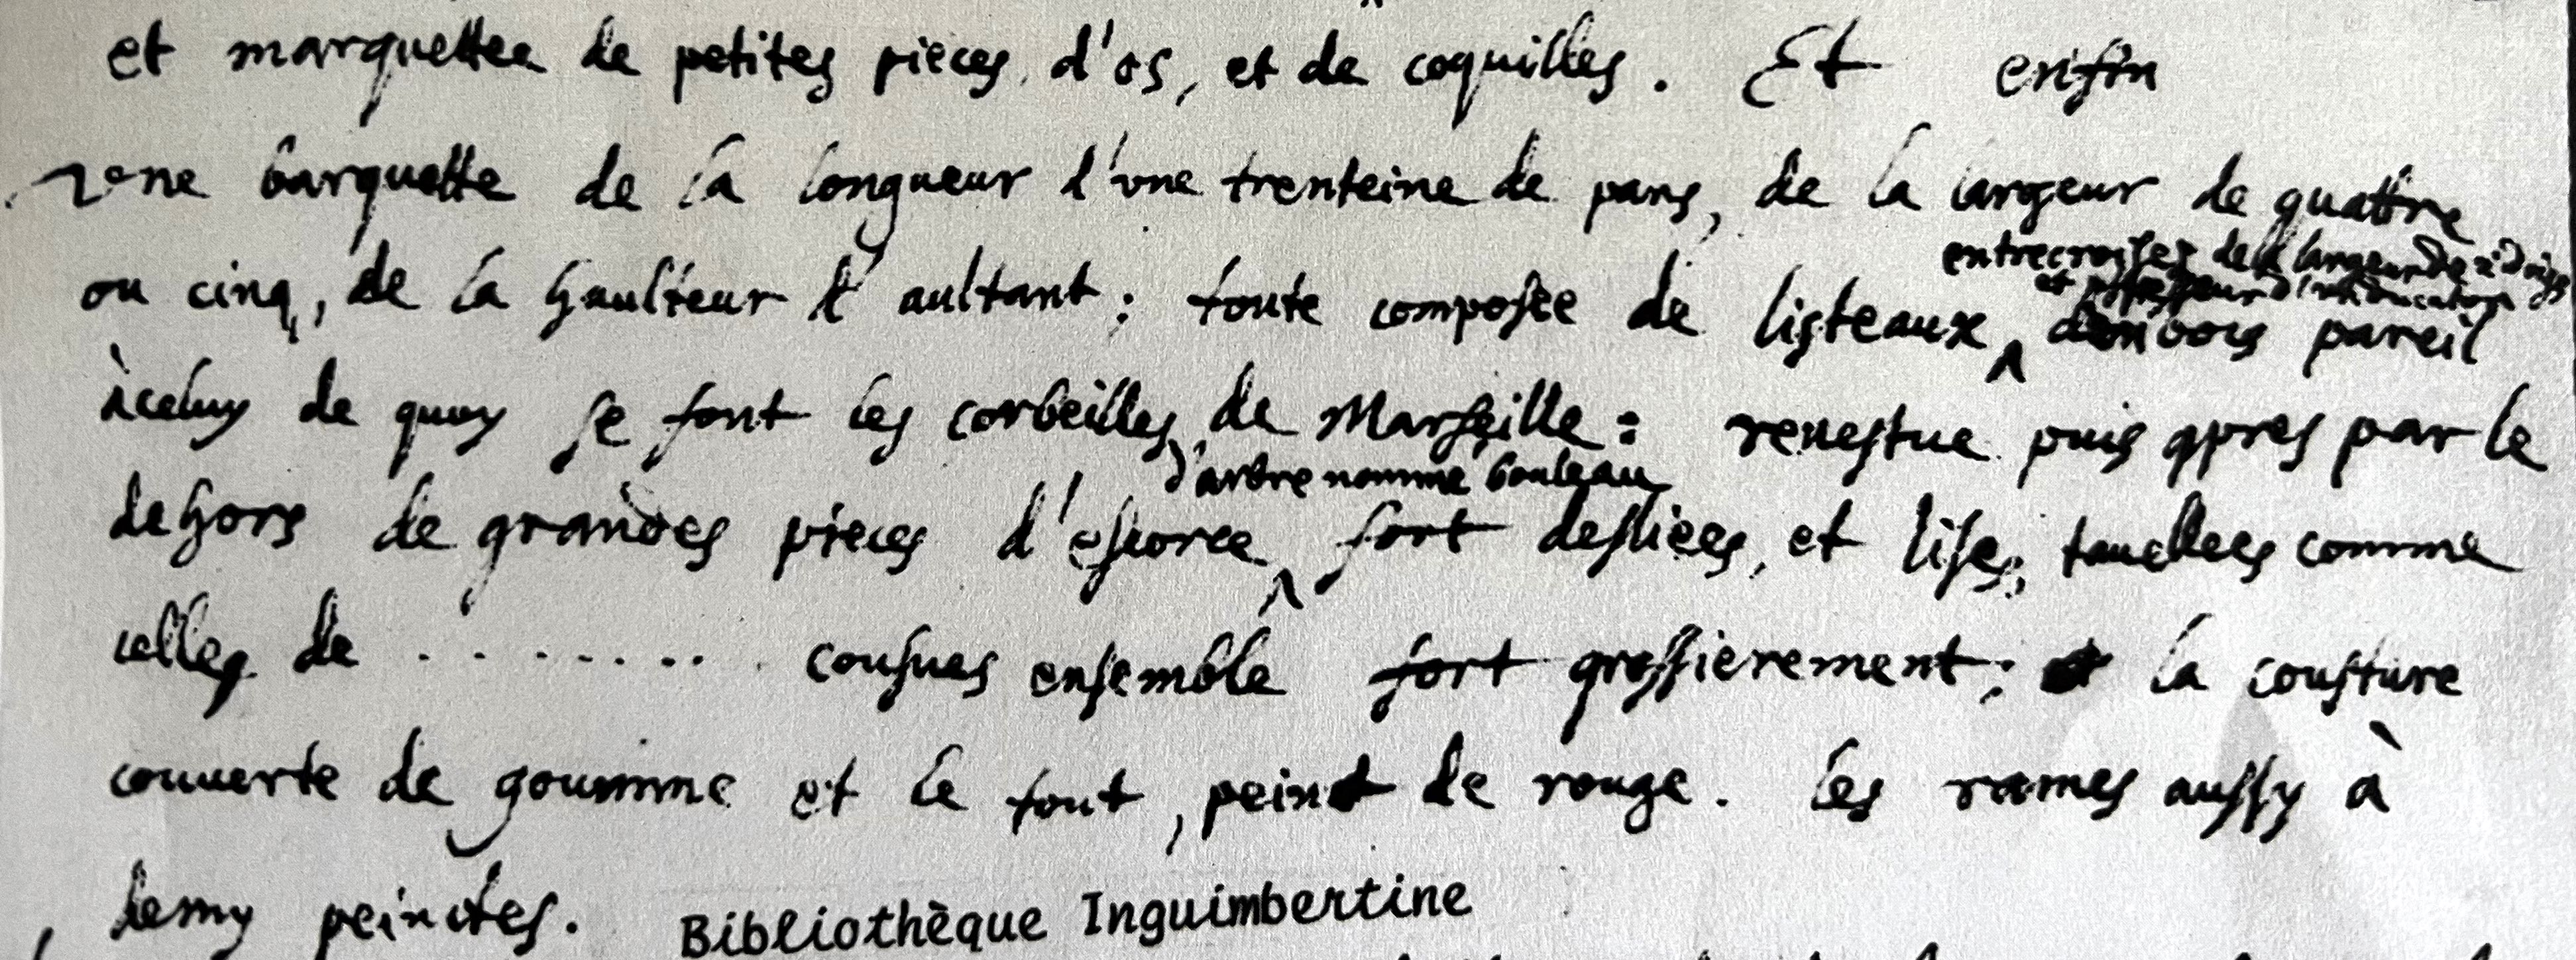 et marquettee de petites pieces d'os, et de coquilles. Et enfin
vne barquette de la longueur d'vne trenteine de pans, de la largeur de quattre
entrecroisez de la largeur de 2 doigs
ou cinq, de la haulteur d'aultant; toute composée de listeaux bois pareil
à celuy de quoy se font les corbeilles de Marseille: reuestue puis apres par le
d'arbre nommé bouleau
dehors de grandes pieces d'escorce fort desliées, et lises, comme
celles de ........ cousues ensemble fort grossierement; la cousture
couuerte de goumme et le tout, peint de rouge. les rames aussy à
demy peinctes. Bibliothèque Inguimbertine